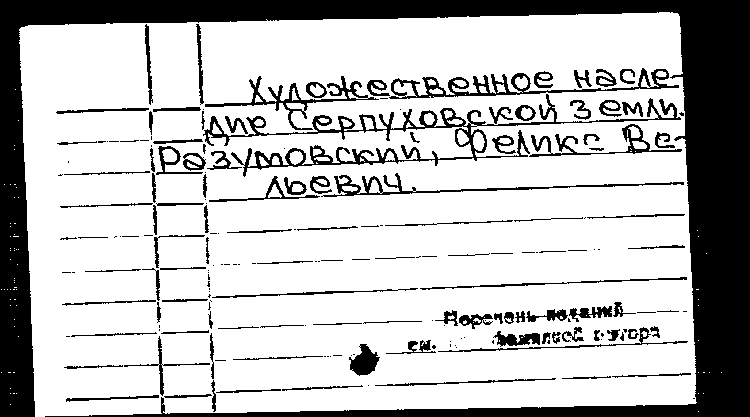 Художественное насле-
дие Серпуховской земли.
Разумовский, Феликс Ве-
льевич.
Перечень изданий
см. фамилией автора